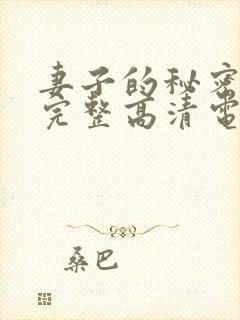 妻子的秘密
完整高清电
桑巴